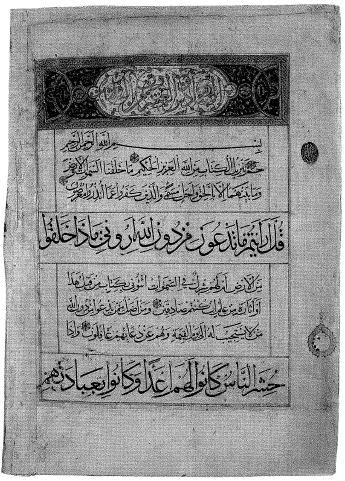 بسم الله الرحمن الرحيم
حم تنزيل الكتاب من الله العزيز الحكيم ما خلقنا السموات والارض
وما بينهما الا بالحق واجل مسمى والذين كفروا عما انذروا معرضون
قل ارايتم ما تدعون من دون الله اروني ماذا خلقوا
من الارض ام لهم شرك في السموات ائتوني بكتاب من قبل هذا
او اثارة من علم ان كنتم صادقين ومن اضل ممن يدعوا من دون الله
من لا يستجيب له الى يوم القيمة وهم عن دعائهم غافلون واذا
حشر الناس كانوا لهم اعداء وكانوا بعبادتهم